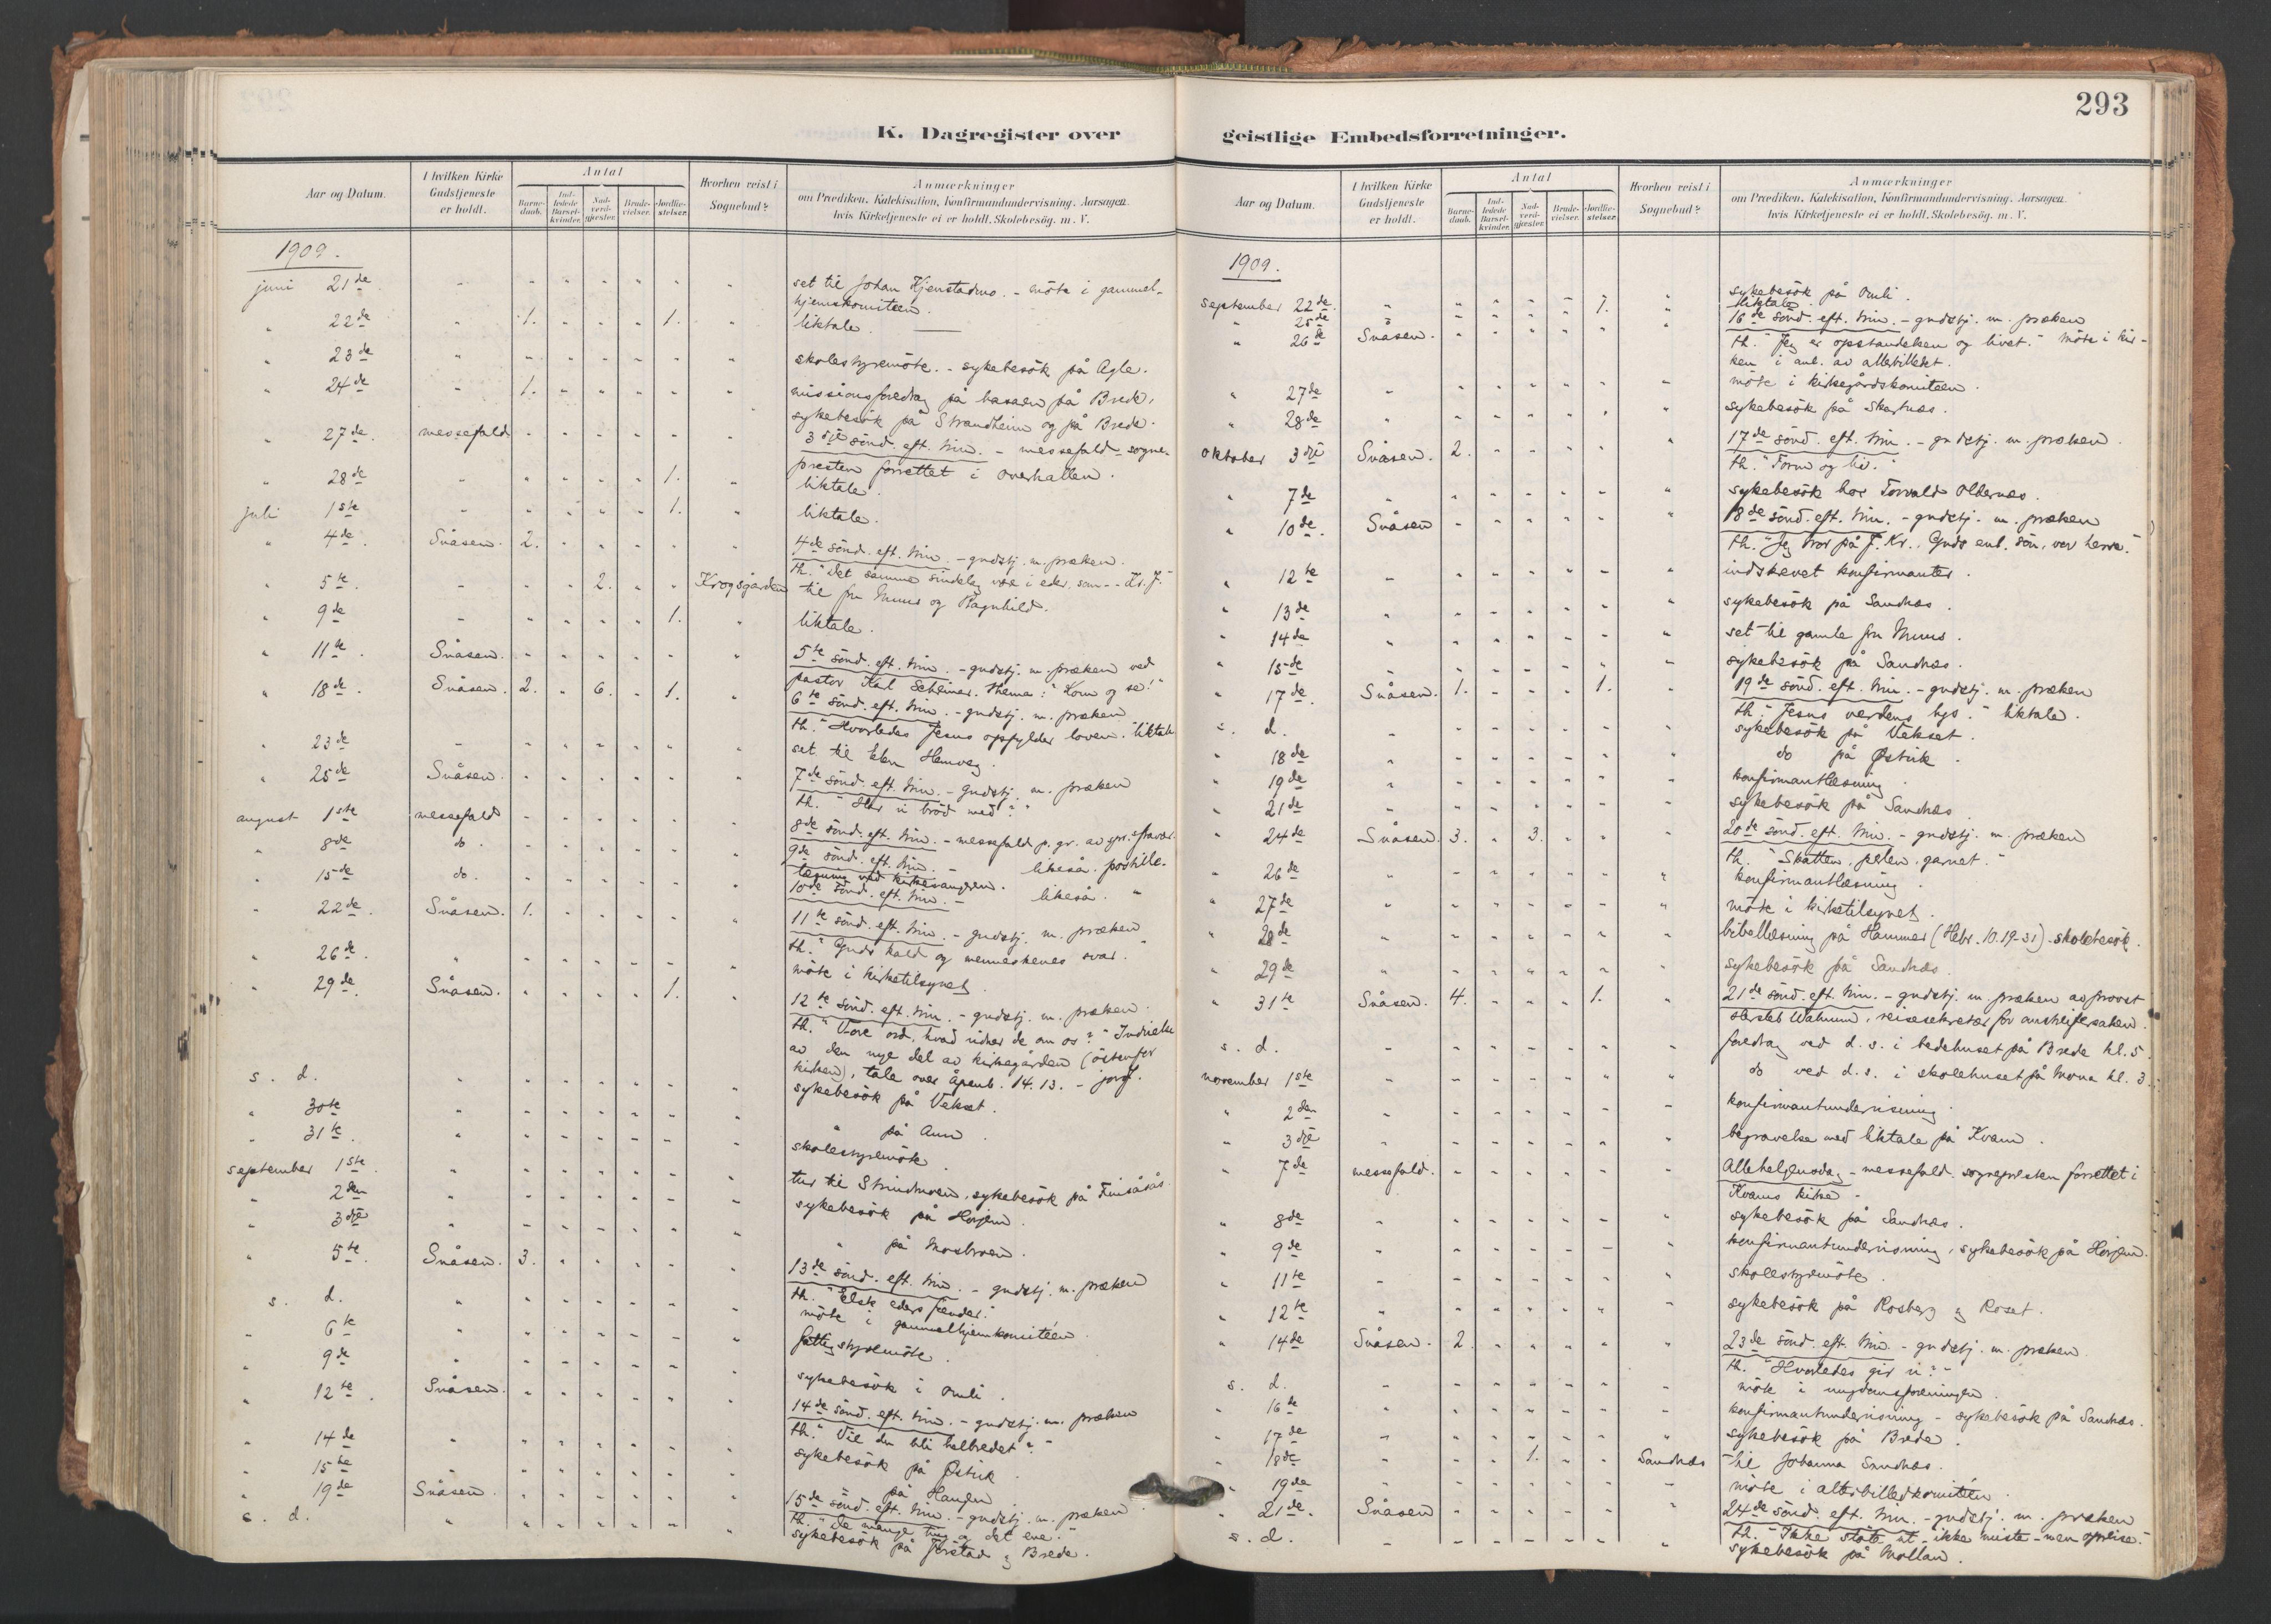 293
K. Dagregister over geistlige Embedsforretninger.
Aar og Datum. I hvilken Kirke Gudstjeneste er holdt. Antal Barnedaab. Indledede Barselkvinder. Nadverdgjæster. Brudevielser. Jordfæstelser. Hvorhen reist i Sognebud? Anmærkninger om Prædiken, Katekisation, Konfirmandundervisning. Aarsagen hvis Kirketjeneste ei er holdt. Skolebesøg. m. V.
1909.
juni 21de " " " " " " " set til Johan Hjenstadmo. - möte i gammel-
hjemskomiteen.
" 22de " 1. " " " 1. " liktale.
" 23de " " " " " " " skolestyremöte. - sykebesök på Agle.
" 24de " 1. " " " " " missionsforedrag på basaren på Brede,
sykebesök på Strandheim og på Brede.
" 27de. messefald " " " " " " 3dje sönd. eft. trin. - messefald - sogne-
presten forrettet i Overhallen.
" 28de " " " " " 1. " liktale.
juli 1ste " " " " " 1. " liktale.
" 4de. Snåsen. 2. " " " " " 4de sönd. eft. trin. - gudstj. m. præken.
th. "Det samme sindelag være i eder, som - - Kr. J."
" 5te. " " " 2. " " Krogsgården til fru Muus og Ragnhild.
" 9de " " " " " 1. " liktale.
" 11te. Snåsen. " " " " " " 5te sönd. eft. trin. - gudstj. m. præken ved
pastor Karl Schreiner. thema: "Kom og se!"
" 18de. Snåsen. 2. " 6. " 1. " 6te sönd. eft. trin. - gudstj. m. præken
th. "Hvorledes Jesus opfylder loven." liktale
" 23de " " " " " " " set til Hemveg.
" 25de Snåsen. " " " " " " 7de sönd. eft. trin. - gudstj. m. præken
th. "Har vi bröd med?"
august 1ste messefald " " " " " " 8de sönd. eft. trin. - messefald p. gr. av spr. fravær.
" 8de do. " " " " " " 9de sönd. eft. trin. - likeså. postille-
læsning ved kirkesangeren.
" 15de do. " " " " " " 10de sönd. eft. trin. - likeså. "
" 22de. Snåsen. 1. " " " " " 11te sönd. eft. trin. - gudstj. m. præken
th. "Guds kald og menneskenes svar."
" 26de. " " " " " " " möte i kirketilsynet.
" 29de. Snåsen. " " " " 1. " 12te sönd. eft. trin. - gudstj. m. præken.
th. "Vore ord, hvad vidner de om os?" Indvielse
av den nye del av kirkegården (östenfor
kirken), tale over Åpenb. 14.13. - jordf.
s. d. " " " " " " " sykebesök på Vekset.
" 30te " " " " " " " " på Aun.
" 31te. " " " " " " " skolestyremöte.
september 1ste. " " " " " " " tur til Strindmoen, sykebesök på Finsåsås.
" 2den " " " " " " " sykebesök på Horjem.
" 3dje " " " " " " " " på Mosbroen.
" 5te. Snåsen. 3. " " " " " 13de sönd. eft. trin. - gudstj. m. præken
th. "Elsk eders fiender."
s. d. " " " " " " " möte i gammelhjemkomitéen.
" 6te " " " " " " " fattigstyremöte.
" 9de " " " " " " " sykebesök i Omli.
" 12te. Snåsen. " " " " " " 14de sönd. eft. trin. - gudstj. m. præken
th. "Vil du bli helbredet?"
" 14de " " " " " " " sykebesök på Östvik.
" 15te " " " " " " " " på Haugen
" 19de Snåsen. " " " " " " 15de sönd. eft. trin. - gudstj. m. præken
th. "De mange ting og det ene."
s. d. " " " " " " " sykebesök på Jörstad og Brede.
Aar og Datum. I hvilken Kirke Gudstjeneste er holdt. Antal Barnedaab. Indledede Barselkvinder. Nadverdgjæster. Brudevielser. Jordfæstelser. Hvorhen reist i Sognebud? Anmærkninger om Prædiken, Katekisation, Konfirmandundervisning. Aarsagen hvis Kirketjeneste ei er holdt. Skolebesøg. m. V.
1909.
september 22de. " " " " " " " sykebesök på Omli.
" 25de " " " " " 1. " liktale
" 26de Snåsen. " " " " " " 16de sönd. eft. trin. - gudstj. m. præken
th. "Jeg er opstandelsen og livet." möte i kir-
ken i anl. av altertilledet.
" 27de " " " " " " " möte i kirkegårdskomiteen.
" 28de " " " " " " " sykebesök på Skartnes.
oktober 3dje Snåsen. 2. " " " " " 17de sönd. eft. trin. - gudstj. m. præken.
th. "Form og liv."
" 7de " " " " " " " sykebesök hos Torvald Oldernes.
" 10de. Snåsen " " " " " " 18de sönd. eft. trin. - gudstj. m. præken
th. "Jeg tror på J. Kr., Guds enb. sön, vor herre."
" 12te " " " " " " " indskrevet konfirmanter.
" 13de " " " " " " " sykebesök på Sandnes.
" 14de " " " " " " " set til gamle fru Muus.
" 15de " " " " " " " sykebesök på Sandnes.
" 17de. Snåsen. 1. " " " 1. " 19de sönd. eft. trin. - gudstj. m. præken
th. "Jesus verdens lys." liktale.
s. d. " " " " " " " sykebesök på Vekset.
" 18de " " " " " " " do på Östvik.
" 19de " " " " " " " konfirmantlæsning.
" 21de " " " " " " " sykebesök på Sandnes
" 24de Snåsen. 3. " 3. " " " 20de sönd. eft. trin. - gudstj. m. præken
th. "Skatten, perlen, garnet."
" 26de " " " " " " " konfirmantlæsning.
" 27de " " " " " " " möte i kirketilsynet.
" 28de " " " " " " " bibellæsning på Hammer (Hebr. 10.19-31). skolebesök.
" 29de " " " " " " " sykebesök på Sandnes.
" 31te Snåsen. 4. " " " 1. " 21de sönd. eft. trin. - gudstj. m. præken av provst
Wahrum, reisesekretær for sjersaken.
s. d. " " " " " " " foredrag ved d. s. i bedehuset på Brede kl. 5.
november 1ste " " " " " " " do ved d. s. i skolehuset på Mona kl. 3.
" 2den " " " " " " " konfirmantundervisning.
" 3dje " " " " " " " begravelse med liktale på Kvam.
" 7de messefald. " " " " " " Allehelgensdag - messefald. sognepresten forrettet i
Kvams kirke.
" 8de " " " " " " " sykebesök på Sandnes.
" 9de " " " " " " " konfirmantundervisning, sykebesök på Horjem.
" 11te " " " " " " " skolestyremöte.
" 12te " " " " " " " sykebesök på Rosberg og Roset.
" 14de Snåsen. 2. " " " " " 23de sönd. eft. trin. - gudstj. m. præken.
th. "Hvorledes gir vi?"
s. d. " " " " " " " möte i ungdomsforeningen.
" 16de " " " " " " " konfirmantundervisning - sykebesök på Sandnes.
" 17de " " " " " " " sykebesök på Brede.
" 18de " " " 1. " " Sandnes til Johanna Sandnes.
" 19de " " " " " " " möte i alterbilledkomitéen.
" 21de. Snåsen " " " " " " 24de sönd. eft. trin. - gudstj. m. præken
th. "Ikke støte ut - ikke miste - men opreise."
s. d. " " " " " " " sykebesök på Mollan.